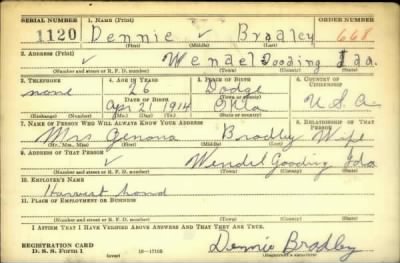 SERIAL NUMBER 1. NAME (Print) ORDER NUMBER
1120 Dennie Bradley 668
(First) (Middle) (Last)
2. ADDRESS (Print)
Wendel Gooding Ida.
(Number and street or R. F. D. number) (Town) (County) (State)
3. TELEPHONE 4. AGE IN YEARS 5. PLACE OF BIRTH 6. COUNTRY OF CITIZENSHIP
none 26 Dodge
(Town or county)
DATE OF BIRTH
Apr 21 1914 Okla U.S.A.
(Exchange) (Number) (Mo.) (Day) (Yr.) (State or country)
7. NAME OF PERSON WHO WILL ALWAYS KNOW YOUR ADDRESS 8. RELATIONSHIP OF THAT PERSON
Mrs Genona Bradley Wife
(Mr., Mrs., Miss) (First) (Middle) (Last)
9. ADDRESS OF THAT PERSON
Wendel Gooding Ida
(Number and street or R. F. D. number) (Town) (County) (State)
10. EMPLOYER'S NAME
Harvest hand
11. PLACE OF EMPLOYMENT OR BUSINESS
(Number and street or R. F. D. number) (Town) (County) (State)
I AFFIRM THAT I HAVE VERIFIED ABOVE ANSWERS AND THAT THEY ARE TRUE.
REGISTRATION CARD
D. S. S. Form 1 (over) 16-17105 Dennie Bradley
(Registrant's signature)